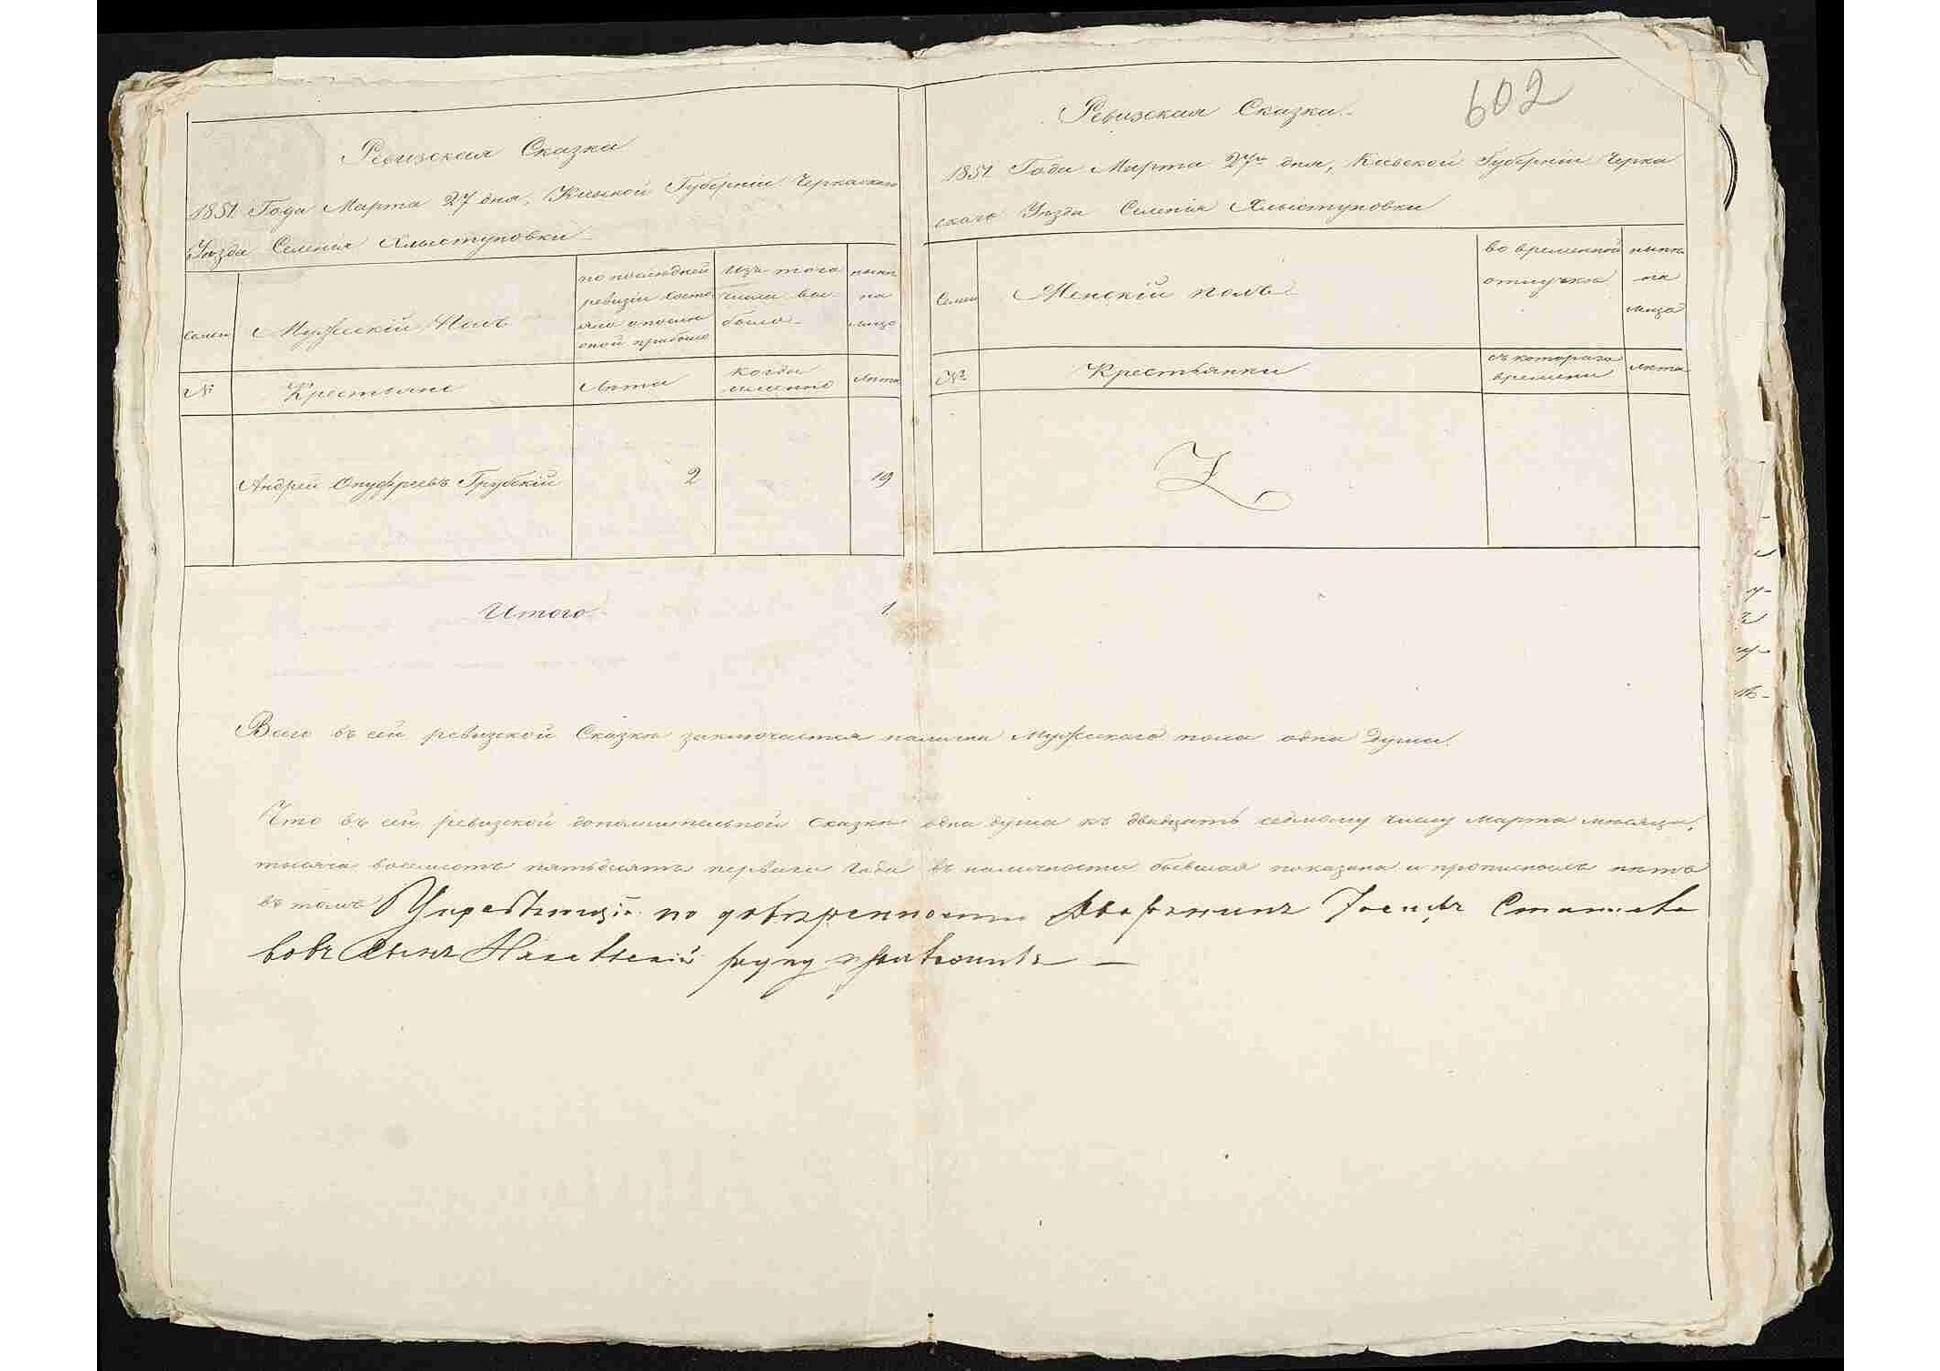 602
Ревизская Сказка
1851 Года Марта 27 дня, Кіевской Губерніи Черкаскаго
Уѣзда Селенія Хлыступовки
Семьи
Мужескій Полъ
по послѣдней
ревизіи состо
яло и послѣ
оной прибыло
Изъ того
числа вы
было
нынѣ
на
лицо
№
Крестьяне
Лѣта
Когда
именно
Лѣта
Андрей Онуфріевъ Грубскій 2 19
Итого 1.
Ревизская Сказка
1851 Года Марта 27го дня, Кіевской Губерніи Черка
скаго Уѣзда Селенія Хлыступовки
Семьи
Женскій полъ
во временной
отлучкѣ
нынѣ
на
лицо
№
Крестьянки
съ котораго
времени
Лѣта
Всего въ сей ревизской Сказкѣ заключается налично Мужескаго пола одна душа.
Что въ сей ревизской дополнительной сказкѣ одна душа къ двадцать седьмому числу Марта мѣсяца,
тысяча восемьсотъ пятьдесятъ перваго Года въ наличности бывшая показана и прописныхъ нѣтъ
въ томъ по довѣренности Дворянинъ Іосифъ
вовъ Сынъ руку приложилъ